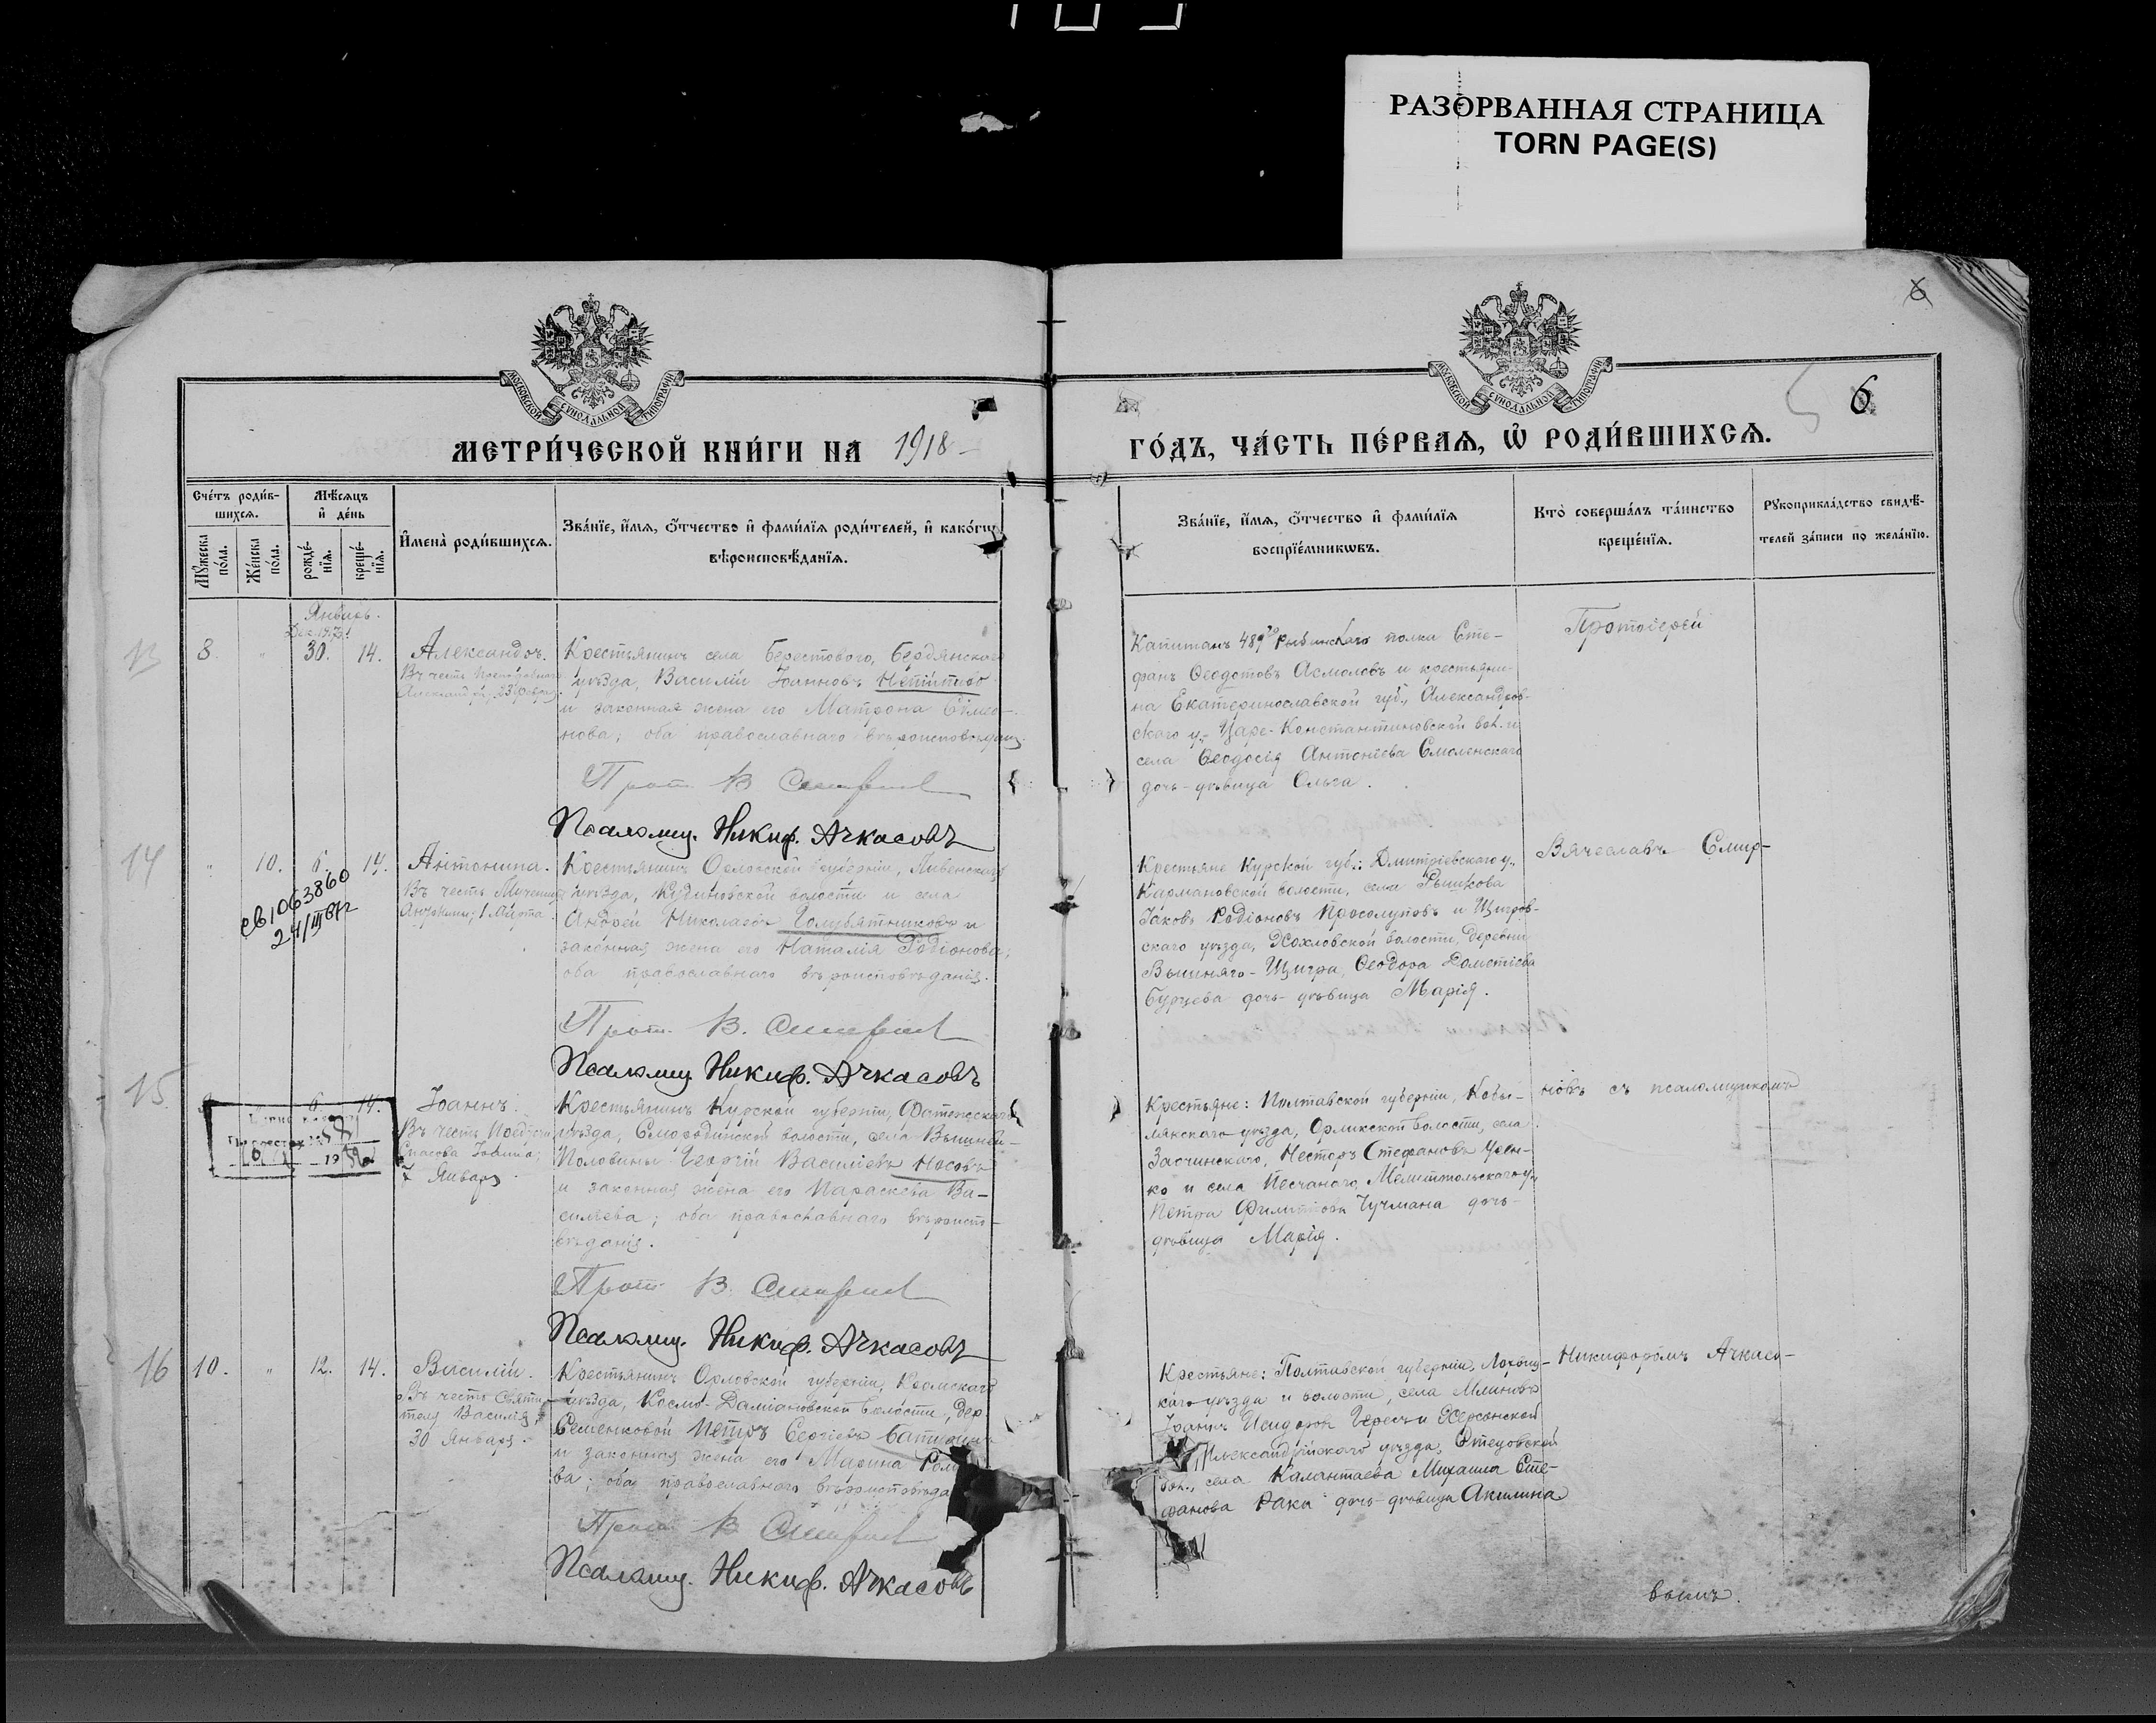 РАЗОРВАННАЯ СТРАНИЦА
TORN PAGE(S)
6
6
МОСКОВСКОЙ СУНОДАЛЬНОЙ ТИПОГРАФІИ
МОСКОВСКОЙ СУНОДАЛЬНОЙ ТИПОГРАФІИ
МЕТРИ́ЧЕСКОЙ КНИ́ГИ НА 1918
ГО́ДЪ, ЧА́СТЬ ПЕ́РВАЯ, Ѽ РОДИ́ВШИХСЯ.
Сче́тъ роди́в-
шихся.
Мꙋ́жеска по́ла.
Же́нска по́ла.
Мѣ́сяцъ
и҆ де́нь
рожде́-
нїя.
креще́-
нїя.
И҆мена̀ роди́вшихся.
Зва́нїе, и҆́мя, ѻ҆́тчество и҆ фами́лїя роди́телей, и҆ како́гѡ
вѣроисповѣ́данїя.
Зва́нїе, и҆́мя, ѻ҆́тчество и҆ фами́лїя
воспрїе́мникѡвъ.
Кто̀ соверша́лъ та́инство
креще́нїя.
Рꙋкоприкла́дство свидѣ́-
телей за́писи по жела́нїю.
Январь.
Дек. 1917 г.
13 8. " 30. 14. Александръ.
Въ честь Преподобнаго
Александра, 23 Февраля.
Крестьянинъ села Берестового, Бердянскаго
уѣзда, Василій Іоанновъ
и законная жена его Матрона Сімео-
нова; оба православнаго вѣроисповѣданія.
Прот. В Смирнов
Псаломщ. Никиф. Ачкасовъ
Капитанъ 489го Рыбинскаго полка Сте-
фанъ Ѳеодотовъ Асмоловъ и крестьяни-
на Екатеринославской губ., Александров-
скаго у., Царе-Константиновской вол. и
села Ѳеодосія Антоніева Смоленскаго
дочь-дѣвица Ольга.
Протоіерей
14 " 10. 6. 14. Антонина.
Въ честь Мученицы
Антонины, 1 Марта
ев1063860
Крестьянинъ Орловской губерніи, Ливенскаго
уѣзда, волости и села
Андрей Николаевъ Голубятниковъ и
законная жена его Наталія Родіонова;
оба православнаго вѣроисповѣданія.
Прот. В. Смирнов
Псаломщ. Никиф. Ачкасовъ
Крестьяне Курской губ.: Дмитріевскаго у.,
Кармановской волости, села Рышкова
Іаковъ Родіоновъ Просолуповъ и Щигров-
скаго уѣзда, Хохловской волости, деревни
Вышняго-Щигра, Ѳеодора Дометіева
Бурцева дочь-дѣвица Марія.
Вячеславъ Смир-
15 6. 14. Іоаннъ.
Января
Крестьянинъ Курской губерніи, Фатежскаго
уѣзда, Смородинской волости, села Вышней-
Половины Георгій Василіевъ Носовъ
и законная жена его Параскева Ва-
силіева; оба православнаго вѣроиспо-
вѣданія.
Прот. В. Смирнов
Псаломщ. Никиф. Ачкасовъ
Крестьяне: Полтавской губерніи, Кобы-
лякскаго уѣзда, Орликской волости, села
Несторъ Стефановъ
ко и села Песчанаго, Мелитопольскаго у.,
Петра Филиппова Чучмана дочь-
дѣвица Марія.
новъ съ псаломщикомъ
16 10. " 12. 14. Василій.
Въ честь Святи-
теля Василія
30 Января.
Крестьянинъ Орловской губерніи, Кромскаго
уѣзда, Космо-Даміановской волости, дер.
Семенковой Петръ Сергіевъ
и законная жена его Марина
ва; оба православнаго
Прот. В Смирнов
Псаломщ. Никиф. Ачкасовъ
Крестьяне: Полтавской губерніи, Лохвиц-
каго уѣзда и волости, села Млиновъ
Іоаннъ Исидоровъ и Херсонской
Александрійскаго уѣзда,
вол., села Калантаева Михаила Сте-
фанова Рака дочь-дѣвица Акилина
Никифоромъ Ачкасо-
вымъ.